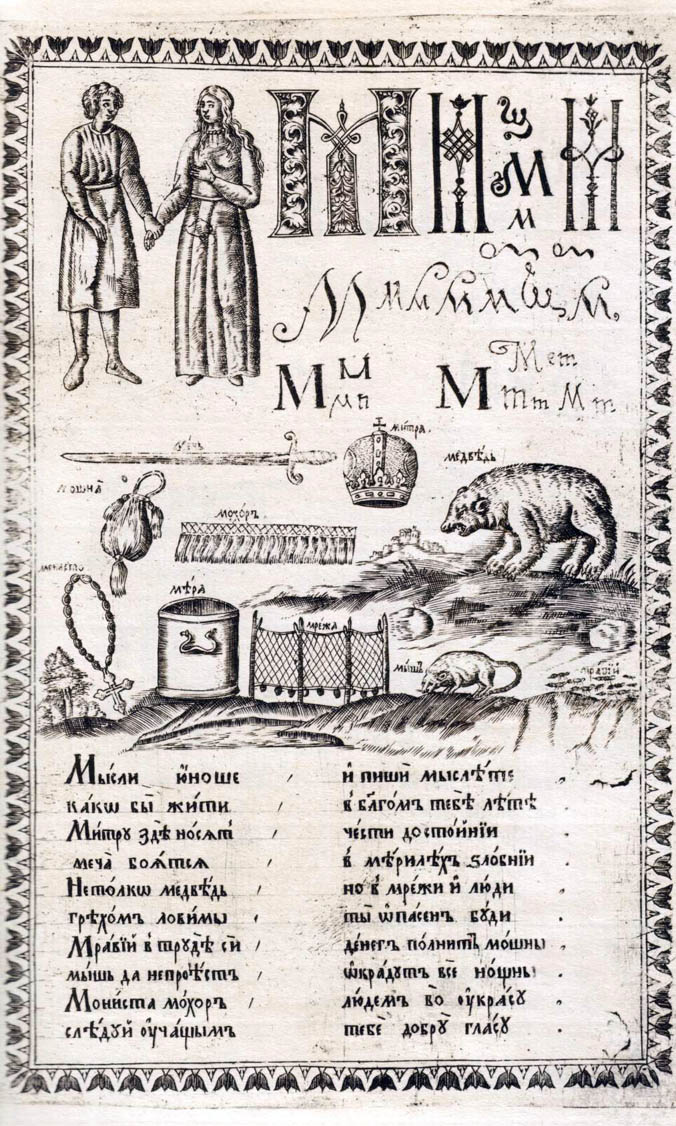 М
м
м
М
М Мет
мечь
митра
медвѣдь
мошна
мохоръ
монисто
мѣра
мрежа
мышь
мравїй
Мысли юноше и҆ пиши мыслѣте
какѡ бы̀ жити в̾ бл҃гомъ тебѣ лѣтѣ
Митру здѣ носѧт̾ чести достойнїи
меча боѧтсѧ в̾ мѣрилѣхъ ѕлобнїи
Нетолкѡ медвѣдь но в̾ мрежи и҆ люди
грѣхомъ ловимы ты̀ ѡ҆пасенъ буди
Мравїй в̾ трудѣ сѝ денегъ полнитъ мошны
мышь да непроѣстъ ѡ҆крадутъ всѐ нощны
Мониста мохоръ людемъ во ѹ҆красу
слѣдуй ѹ҆чащымъ тебе добру гласу